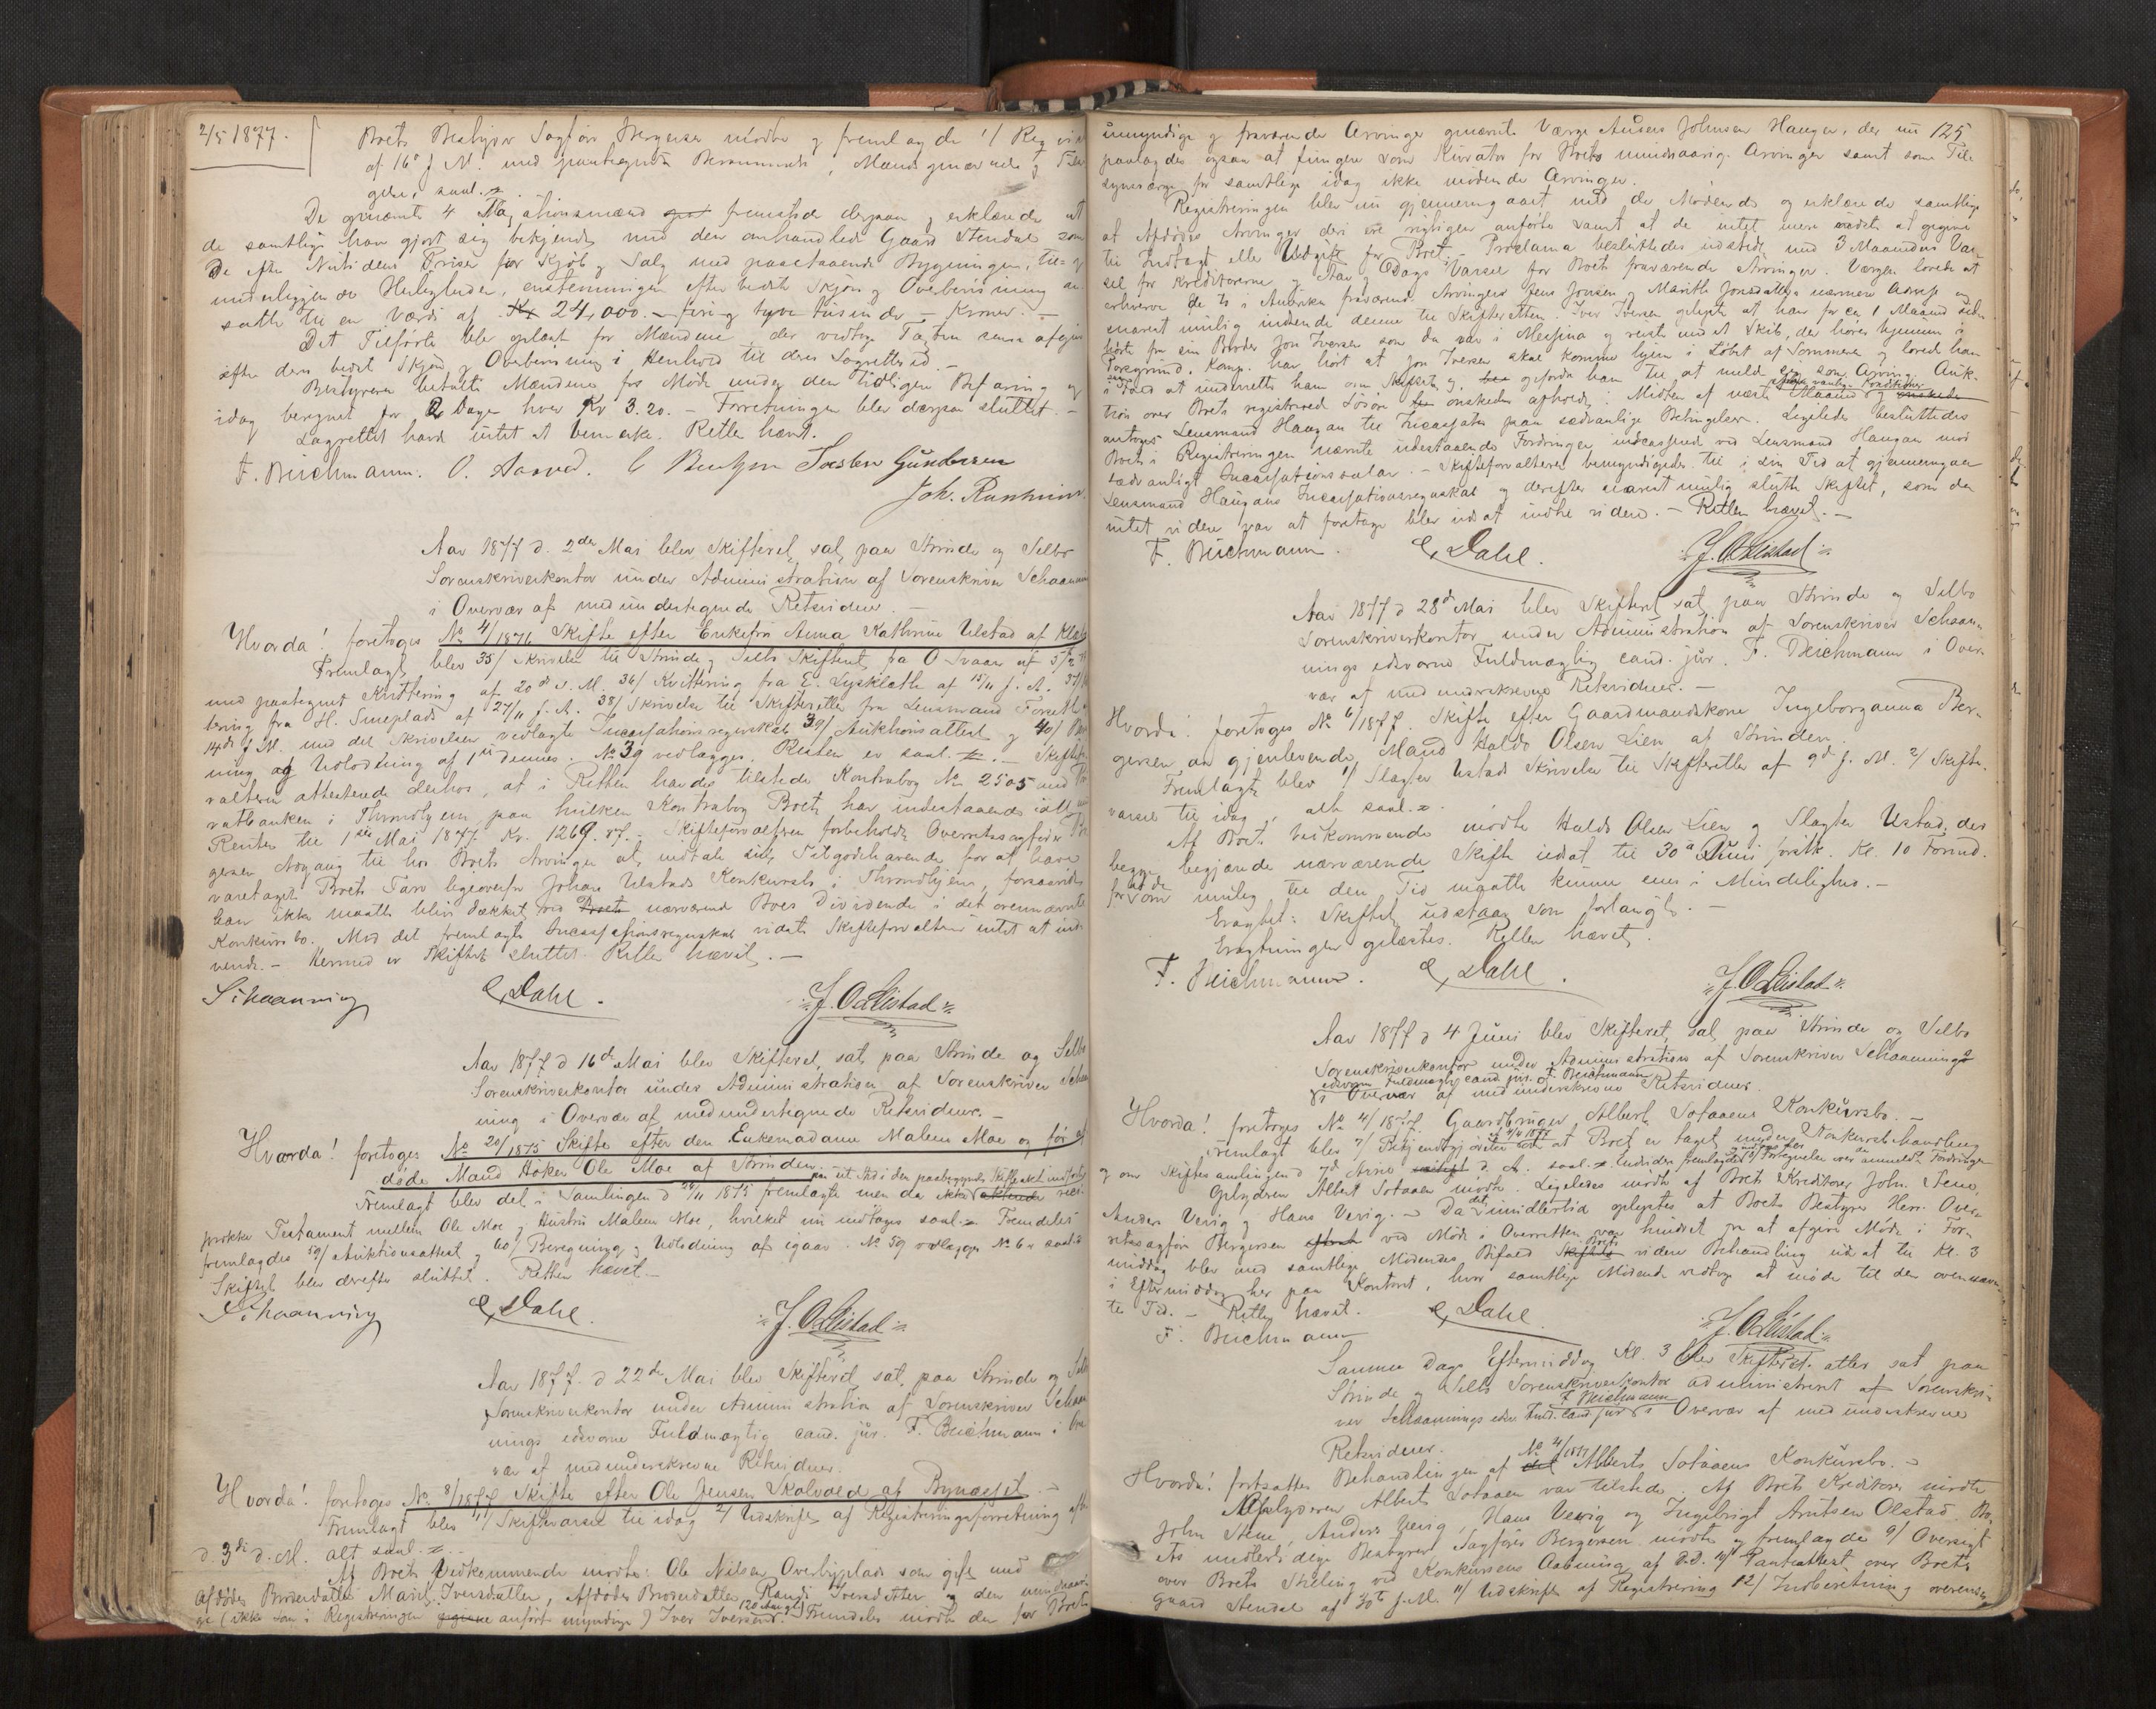 2/5 1877.
Boets Bestyrer Sagfører Bergersen mødte og fremlagde 1/
af 16de f. M. med paategnede Berammelse, Mændsopnævnelse og
gelse, saal.
De opnævnte 4 Taxationsmænd fremstode derpaa og erklærede at
de samtlige have gjort sig bekjendt med den omhandlede Gaard Stendal som
de efter Nutidens Priser for Kjøb og Salg med paastaaende Bygninger, til- og
underliggende Herligheder, enstemmigen efter bedste Skjøn og Overbevisning an-
satte til en Værdi af Kr 24,000. - fire og tyve tusinde - Kroner. -
Det Tilførte blev oplæst for Mændene der vedtog Taxten som afgivet
efter deres bedste Skjøn og Overbevisning i Henhold til deres Lagretted. -
Bestyreren betalte Mændene for Møde under den tidligere Befaring og
idag beregnet for 2 Dage hver Kr 3.20. - Forretningen blev derpaa sluttet. -
Lagrettet havde intet at bemærke. Retten hævet.
F. Beichmann. O. Aasved. C Bentzen Torsten Gundersen
Joh.
Aar 1877 d. 2den Mai blev Skifteret sat paa Strinde og Selbo
Sorenskriverkontor under Administration af Sorenskriver Schaanning
i Overvær af medundertegnede Retsvidner. -
Hvorda! foretoges No 4/1876 Skifte efter Enkefru Anna Kathrine Ulstad af
Fremlagt blev 35/ Skrivelse til Strinde og Selbo Skifteret fra O Svaan af 5/2
med paategnet Kvittering af 20de s. M. 36/ Kvittering fra E. Lysklett af 15/11 f. A. 37/
tering fra H. Sneeplads af 27/11 f. A. 38/ Skrivelse til Skifteretten fra Lensmand
14de f. M. med det Skrivelsen vedlagte Incassationsregnskab 39/ Auktionsattest og 40/
ning og Udlodning af 1ste dennes. No 39 vedlægges. Resten er saal. - Skifte-
valteren attesterede derhos, at i Retten havdes tilstede Kontrabog No 2505 med
vatbanken i Throndhjem, paa hvilken Kontrabog Boet har indestaaende
Renter til 1ste Mai 1877 Kr. 1269.87. - Skifteforvalteren forbeholdt Overretssagfører
gersen Adgang til hos Boets Arvinger at indtale sit Tilgodehavende for at have
varetaget Boets Tarv ligeoverfor Johan Ulstads Konkursbo i Throndhjem, forsaavidt
han ikke maatte blive dækket ved Boets nærværende Boes Dividende i det ovennævnte
Konkursbo. Mod det fremlagte Incassationsregnskab vidste Skifteforvalteren intet at ind-
vende. - Hermed er Skiftet sluttet. Retten hævet. -
Schaanning E, Dahl. J. O. Leistad
Aar 1877 d 16de Mai blev Skifteret sat paa Strinde og Selbo
Sorenskriverkontor under Administration af Sorenskriver
ning i Overvær af medundertegnede Retsvidner. -
Hvorda! foretoges No 20/1875 Skifte efter den Enkemadame Maleen Moe og før af-
døde Mand Høker Ole Moe af Strinden.
Fremlagt blev det i Samlingen d 26/11 1875 fremlagte men da ikke
prokke Testament mellem Ole Moe og Hustru Maleen Moe, hvilket nu indtages saal. Fremdeles
fremlagdes 59/ Auktionsattest og 60/ Beregning og Udlodning af igaar. No 59 vedlægges No 6
Skiftet blev derefter sluttet. Retten hævet. -
Schaanning E, Dahl. J. O. Leistad
Aar 1877. d 22de Mai blev Skifteret sat paa Strinde og
Sorenskriverkontor under Administration af Sorenskriver
nings edsvorne Fuldmægtig cand. jur. F. Beichmann i
vær af medunderskrevne Retsvidner.
Hvorda! foretoges No 8/1877 Skifte efter Ole Jensen Skolvold af Bynæsset. -
Fremlagt blev 1/ Skiftevarsel til idag 2/ Udskrift af Registreringsforretning
d. 3de d. M. alt saal. -
Af Boets Vedkommende mødte: Ole Nilsen Overbyplads som gift med
Afdødes Broderdatter Marit Iversdatter, Afdødes Broderdatter Randi Iversdatter og den
ge (ikke som i Registreringen anført myndige) Iver Iversen. Fremdeles mødte den for Boets
125
umyndige og fraværende Arvinger opnævnte Værge Anders Johnsen Haugen, der nu
paalagdes ogsaa at fungere som Kurator for Boets mindreaarige Arvinger samt som Til-
synsværge for samtlige idag ikke mødende Arvinger.
Registreringen blev nu gjennemgaaet med de Mødende og erklærede samtlige
at Afdødes Arvinger deri ere rigtigen anførte samt at de intet mere vidste at opgive
til Indtægt eller Udgift for Boet. - Proclama besluttedes udstedt med 3 Maaneders Var-
sel for Kreditorerne og Aar og Dags Varsel for Boets fraværende Arvinger. Værgen lovede at
erhverve de to i Amerika fraværende Arvingers Jens Jonsen og Marith Jonsdatters nærmere Adresse og
snarest mulig indsende denne til Skifteretten. Iver Iversen oplyste at han for ca 1 Maaned siden
hørte fra sin Broder Jon Iversen som da var i Messina og reiste med et Skib, der hører hjemme i
Porsgrund. Komp. har hørt at Jon Iversen skal komme hjem i Løbet af Sommeren og lovede han
i Fald at underrette ham om Skiftet og opfordre ham til at melde sig som Arving. Auk-
tion over Boets registrerede Løsøre ønskedes afholdt i Midten af næste Maaned
antoges Lensmand Haugan til Incassator paa sædvanlige Betingelser. Ligeledes besluttedes
Boets i Registreringen nævnte udestaaende Fordringer indcasseret ved Lensmand Haugan mod
sædvanligt Incassationssalær. - Skifteforvalteren bemyndigedes til i sin Tid at gjennemgaa
Lensmand Haugans Incassationsregnskab og derefter snarest mulig slutte Skiftet, som da
intet videre var at foretage blev udsat indtil videre. - Retten hævet. -
F. Beichmann. E, Dahl. J. O. Leistad
Aar 1877 d 28de Mai blev Skifteret sat paa Strinde og Selbo
Sorenskriverkontor under Administration af Sorenskriver Schaan-
nings edsvorne Fuldmægtig cand. jur. F. Beichmann i Over-
vær af medunderskrevne Retsvidner. -
Hvorda! foretoges No 6/1877. Skifte efter Gaardmandskone Ingeborganna Ber-
gersen og gjenlevende Mand Haldo Olsen Lien af Strinden.
Fremlagt blev 1/ Slagter Ustads Skrivelse til Skifteretten af 9de f. M. 2/ Skifte-
varsel til idag, alt saal.
Af Boets Vedkommende mødte Haldo Olsen Lien og Slagter Ustad, der
begge begjærede nærværende Skifte udsat til 30te Juni førstk. Kl. 10 Formd.
for om mulig til den Tid maatte kunne enes i Mindelighed. -
Eragtet: Skiftet udstaar som forlangt. -
Eragtningen oplæstes. Retten hævet.
F. Beichmann. E, Dahl. J. O. Leistad
Aar 1877 d 4 Juni blev Skifteret sat paa Strinde og Selbo
Sorenskriverkontor under Administration af Sorenskriver Schaannings
edsvorne Fuldmægtig cand. jur. F. Beichmann
i Overvær af medunderskrevne Retsvidner.
Hvorda! foretoges No 4/1877. Gaardbruger Albert Sotaaens Konkursbo. -
Fremlagt blev 7/ Bekjendtgjørelse at Boet er taget under Konkursbehandling
og om Skiftesamling d 7de d. A. saal. Endvidere fremlagdes 8/ Fortegnelse over anmeldte Fordringer
Opbyderen Albert Sotaaen mødte. Ligeledes mødte af Boets Kreditorer John Stene,
Anders Venig og Hans Venig. - Da det imidlertid oplystes at Boets Bestyrer Herr Over-
retssagfører Bergersen ved Møde i Overretten var hindret fra at afgive Møde i For-
middag blev med samtlige Mødendes Bifald Skiftets videre Behandling udsat til Kl. 3
i Eftermiddag her paa Kontoret, hvor samtlige Mødende vedtoge at møde til den ovennævn-
te Tid. - Retten hævet.
F. Beichmann E, Dahl. J. O. Leistad
Samme Dags Eftermiddag Kl. 3 blev Skifteret atter sat paa
Strinde og Selbo Sorenskriverkontor administreret af Sorenskri-
ver Schaannings edsv. Fuldm. cand. jur F Beichmann i Overvær af medunderskrevne
Retsvidner.
Hvorda! fortsattes Behandlingen af No 4/1877 Alberts Sotaaens Konkursbo. -
Opbyderen Albert Sotaaen var tilstede. Af Boets Kreditorer mødte
John Stene, Anders Venig, Hans Venig og Ingebrigt Arntsen Olstad. Bo-
ets midlertidige Bestyrer Sagfører Bergersen mødte og fremlagde 9/ Oversigt
over Boets Stilling ved Konkursens Aabning af D. D. 10/ Panteattest over Boets
Gaard Stendal af 30te f. M. 11/ Udskrift af Registrering 12/ Indberetning